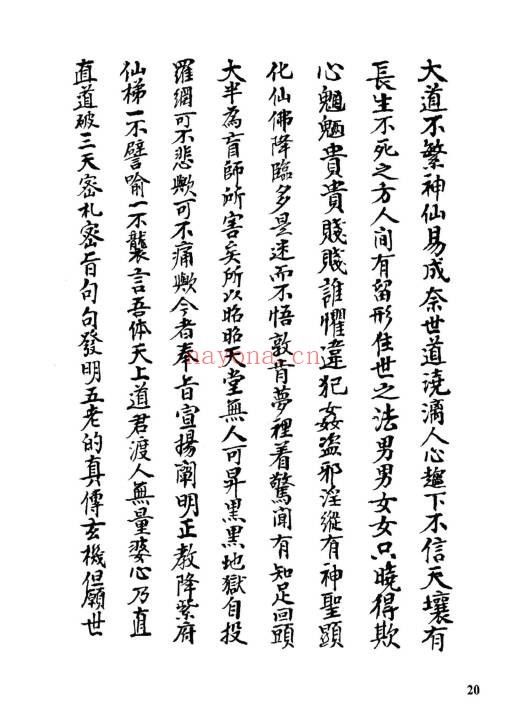 大道不繁神仙易成奈世道澆漓人心趨下不信天壤有
長生不死之方人間有留形住世之法男男女女只曉得欺
心魍魎貴貴賤賤誰懼違犯姦盜邪淫縱有神聖顯
化仙佛降臨多是迷而不悟敦肯夢裡着驚間有知足回頭
大半為盲師所害矣所以昭昭天堂無人可昇黑黑地獄自投
羅網可不悲歟可不痛歟今者奉旨宣揚闡明正教降紫府
仙梯一不譬喻一不襲言吾体天上道君渡人無量婆心乃直
直道破三天密札密旨句句發明五老的真傳玄機但願世
nayona.cn
20